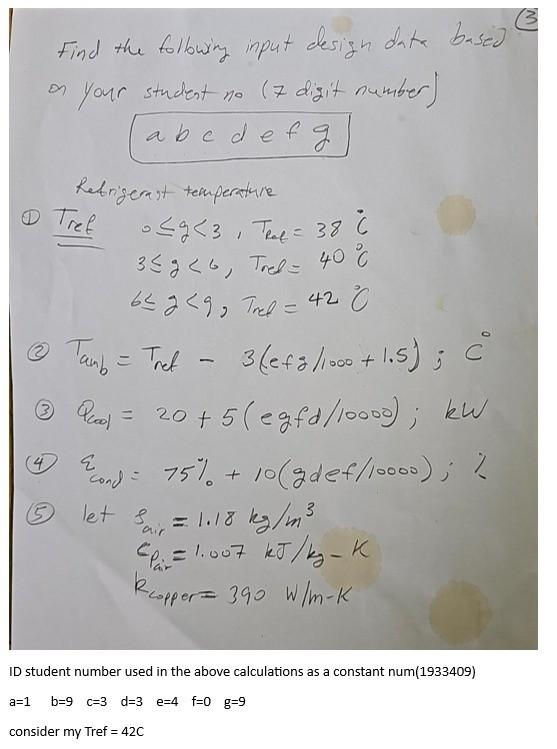 3
Find the following input design data based
on your student no (7 digit number)
a b c d e f g
Refrigerant temperature
① Tref 0 ≤ g < 3 , Tref = 38 °C
3 ≤ g < 6 , Tref = 40 °C
6 ≤ g < 9 , Tref = 42 °C
② Tamb = Tref - 3(efg/1000 + 1.5) ; C°
③ Qcool = 20 + 5(egfd/10000) ; kW
④ εcond = 75% + 10(gdef/10000) ; %
⑤ let ρair = 1.18 kg/m³
Cpair = 1.007 kJ/kg-K
kcopper = 390 W/m-K
ID student number used in the above calculations as a constant num(1933409)
a=1 b=9 c=3 d=3 e=4 f=0 g=9
consider my Tref = 42C